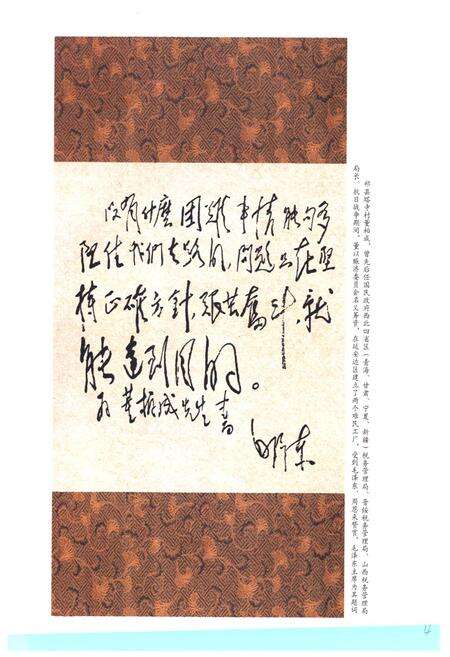 没有什麼困难事情能夠
阻住我们去路的,问题只在坚
持正確方針,艰苦奮斗,就
能達到目的。
为董振成先生书
毛泽东
祁县塔寺村董柏成,曾先后任国民政府西北四省区(青海、甘肃、宁夏、新疆)税务管理局、晋绥税务管理局、山西税务管理局
局长。抗日战争期间,董以赈济委员会名义筹资,在延安边区建立了两个难民工厂,受到毛泽东、周恩来赞赏。毛泽东主席为其题词
4